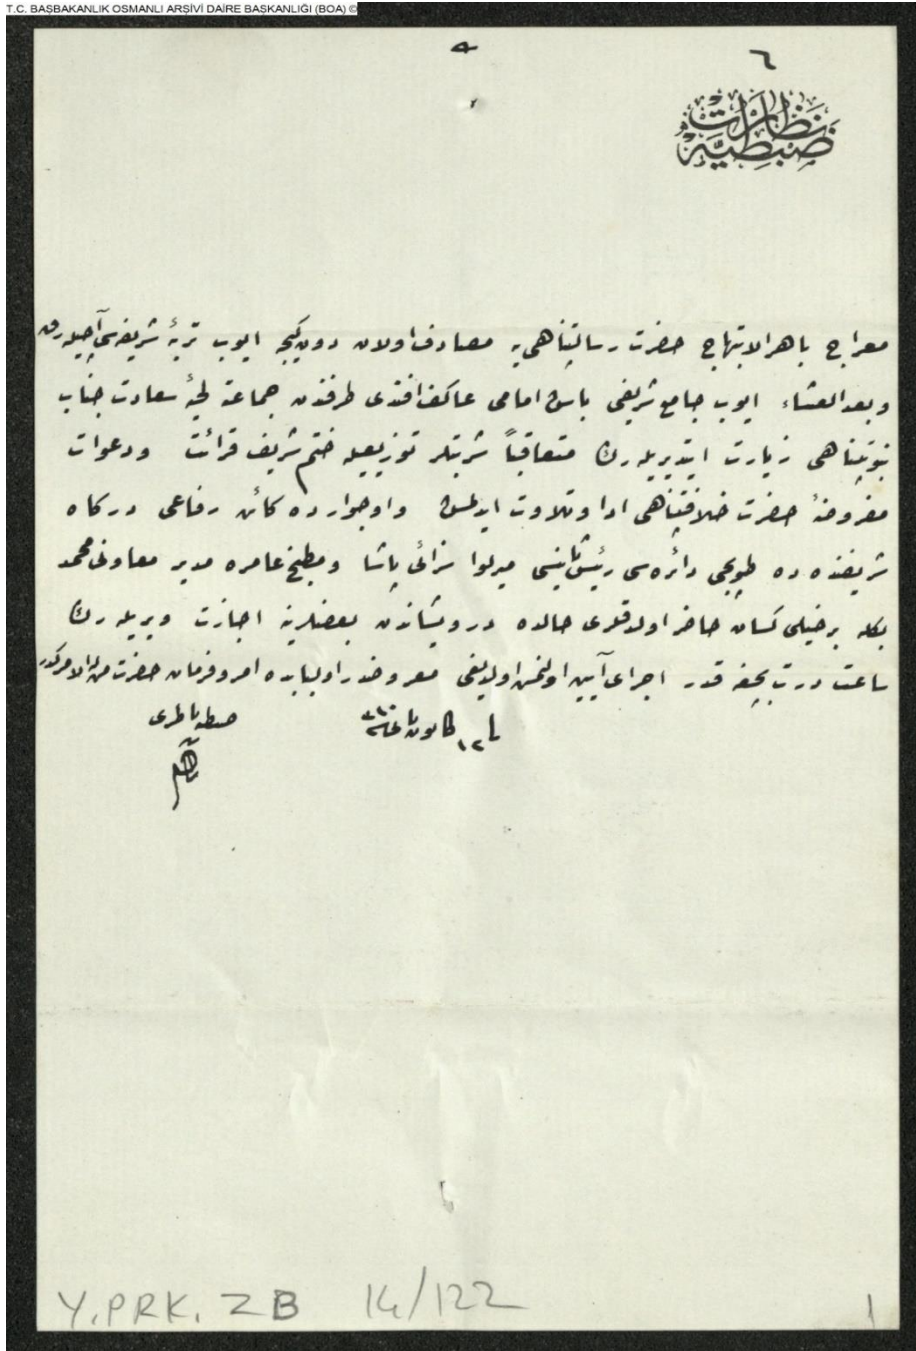 T.C. BAŞBAKANLIK OSMANLI ARŞİVİ DAİRE BAŞKANLIĞI (BOA) ©
٦
نظارت ضبطیه
معراج باهر الابتهاج حضرت رسالتپناهی یه مصادف اولان دون کیجه ایوب تربۀ شریفه سی آچیله رق
وبعد العشاء ایوب جامع شریفی باش امامی عاکف افندی طرفندن جماعته لحیۀ سعادت جناب
نبوتپناهی زیارت ایتدیریله رك متعاقباً شربتلر توزیعیله ختم شریف قرائت ودعوات
مفروضۀ حضرت خلافتپناهی ادا وتلاوت ایدلمش واوجوارده کائن رفاعی درکاه
شریفنده ده طوپجی دائره سی رئیس ثانیسی میرلوا پاشا ومطبخ عامره مدیر معاونی محمد
بکله برخیلی کسان حاضر اولدقلری حالده درویشاندن بعضلرینه اجازت ویریله رك
ساعت درت بچغه قدر اجرای آیین اولنمش اولدیغی معروضدر اولبابده امر وفرمان حضرت من له الامرکدر
کانون ثانی
ضبطیه ناظری
Y.PRK. ZB 14/122
1